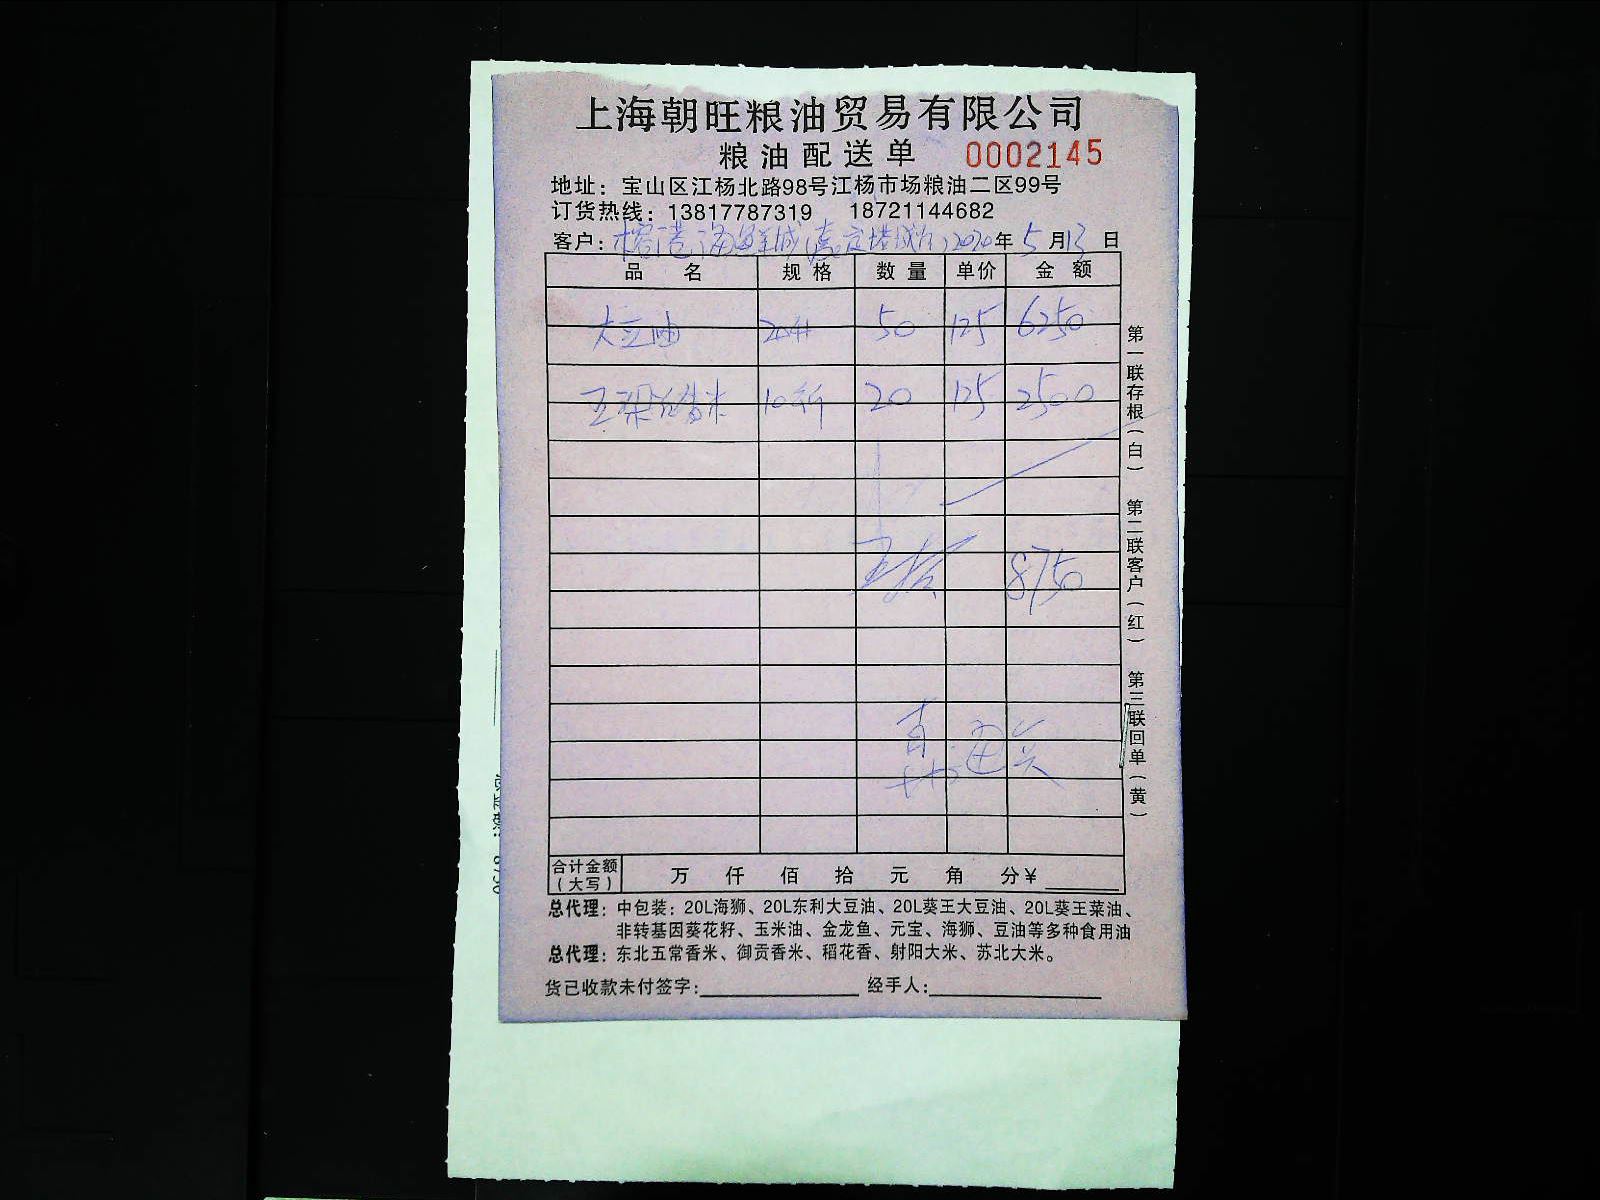 上海朝旺粮油贸易有限公司
粮油配送单 0002145
地址：宝山区江杨北路98号江杨市场粮油二区99号
订货热线：13817787319 18721144682
客户：榕港海鲜城 2020年5月13日
品名 规格 数量 单价 金额
大豆油 20升 50 125 6250
香米 10斤 20 125 2500
8750
合计金额（大写） 万 仟 佰 拾 元 角 分¥
总代理：中包装：20L海狮、20L东利大豆油、20L葵王大豆油、20L葵王菜油、
非转基因葵花籽、玉米油、金龙鱼、元宝、海狮、豆油等多种食用油
总代理：东北五常香米、御贡香米、稻花香、射阳大米、苏北大米。
货已收款未付签字： 经手人：
第一联存根（白） 第二联客户（红） 第三联回单（黄）